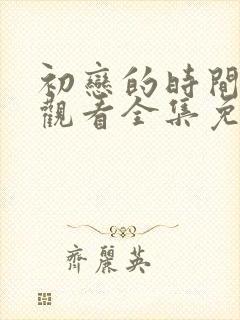 初戀的時間
觀看全集免
齊麗英